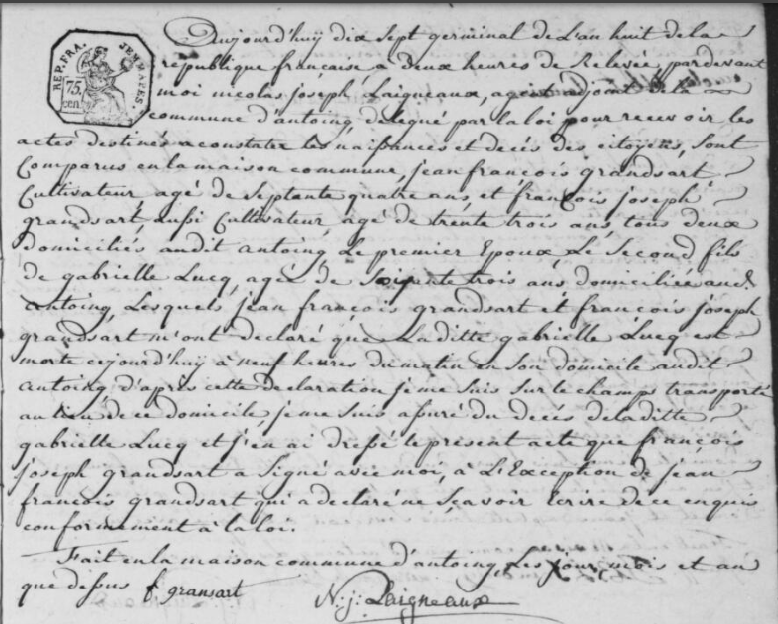 REP. FRA. JEMMAPES
75.
cen.
Aujourd'huÿ dix sept germinal de L'an huit de la
république française, a deux heures de Relevée, pardevant
moi nicolas joseph Laigneaux, agent adjoint de la
commune d'antoing, delegué par la loi pour recevoir les
actes destinés a constater les naissances et decés des citoyens, sont
Comparus en la maison commune, jean françois grandsart
Cultivateur, agé de septante quatre ans, et françois joseph
grandsart, aussi Cultivateur, agé de trente trois ans, tous deux
domiciliés audit antoing, Le premier Epoux, Le Second fils
de gabrielle Lucq, agée de soixante trois ans domiciliée audt
antoing, Lesquels, jean françois grandsart et françois joseph
grandsart m'ont declaré que La ditte gabrielle Lucq est
morte cejourd'huÿ a neuf heures du matin en son domicile audit
antoing, d'après cette declaration je me suis sur le champs transporté
au lieu de ce domicile, je me suis assuré du decés de la ditte
gabrielle Lucq et j'en ai dressé le present acte que françois
joseph grandsart a signé avec moi, à L'Exception de jean
françois grandsart qui a declaré ne sçavoir Ecrire de ce enquis
conformement à la loi.
Fait en la maison commune d'antoing, Les jour, mois et an
que dessus f gransart N. j. Laigneaux